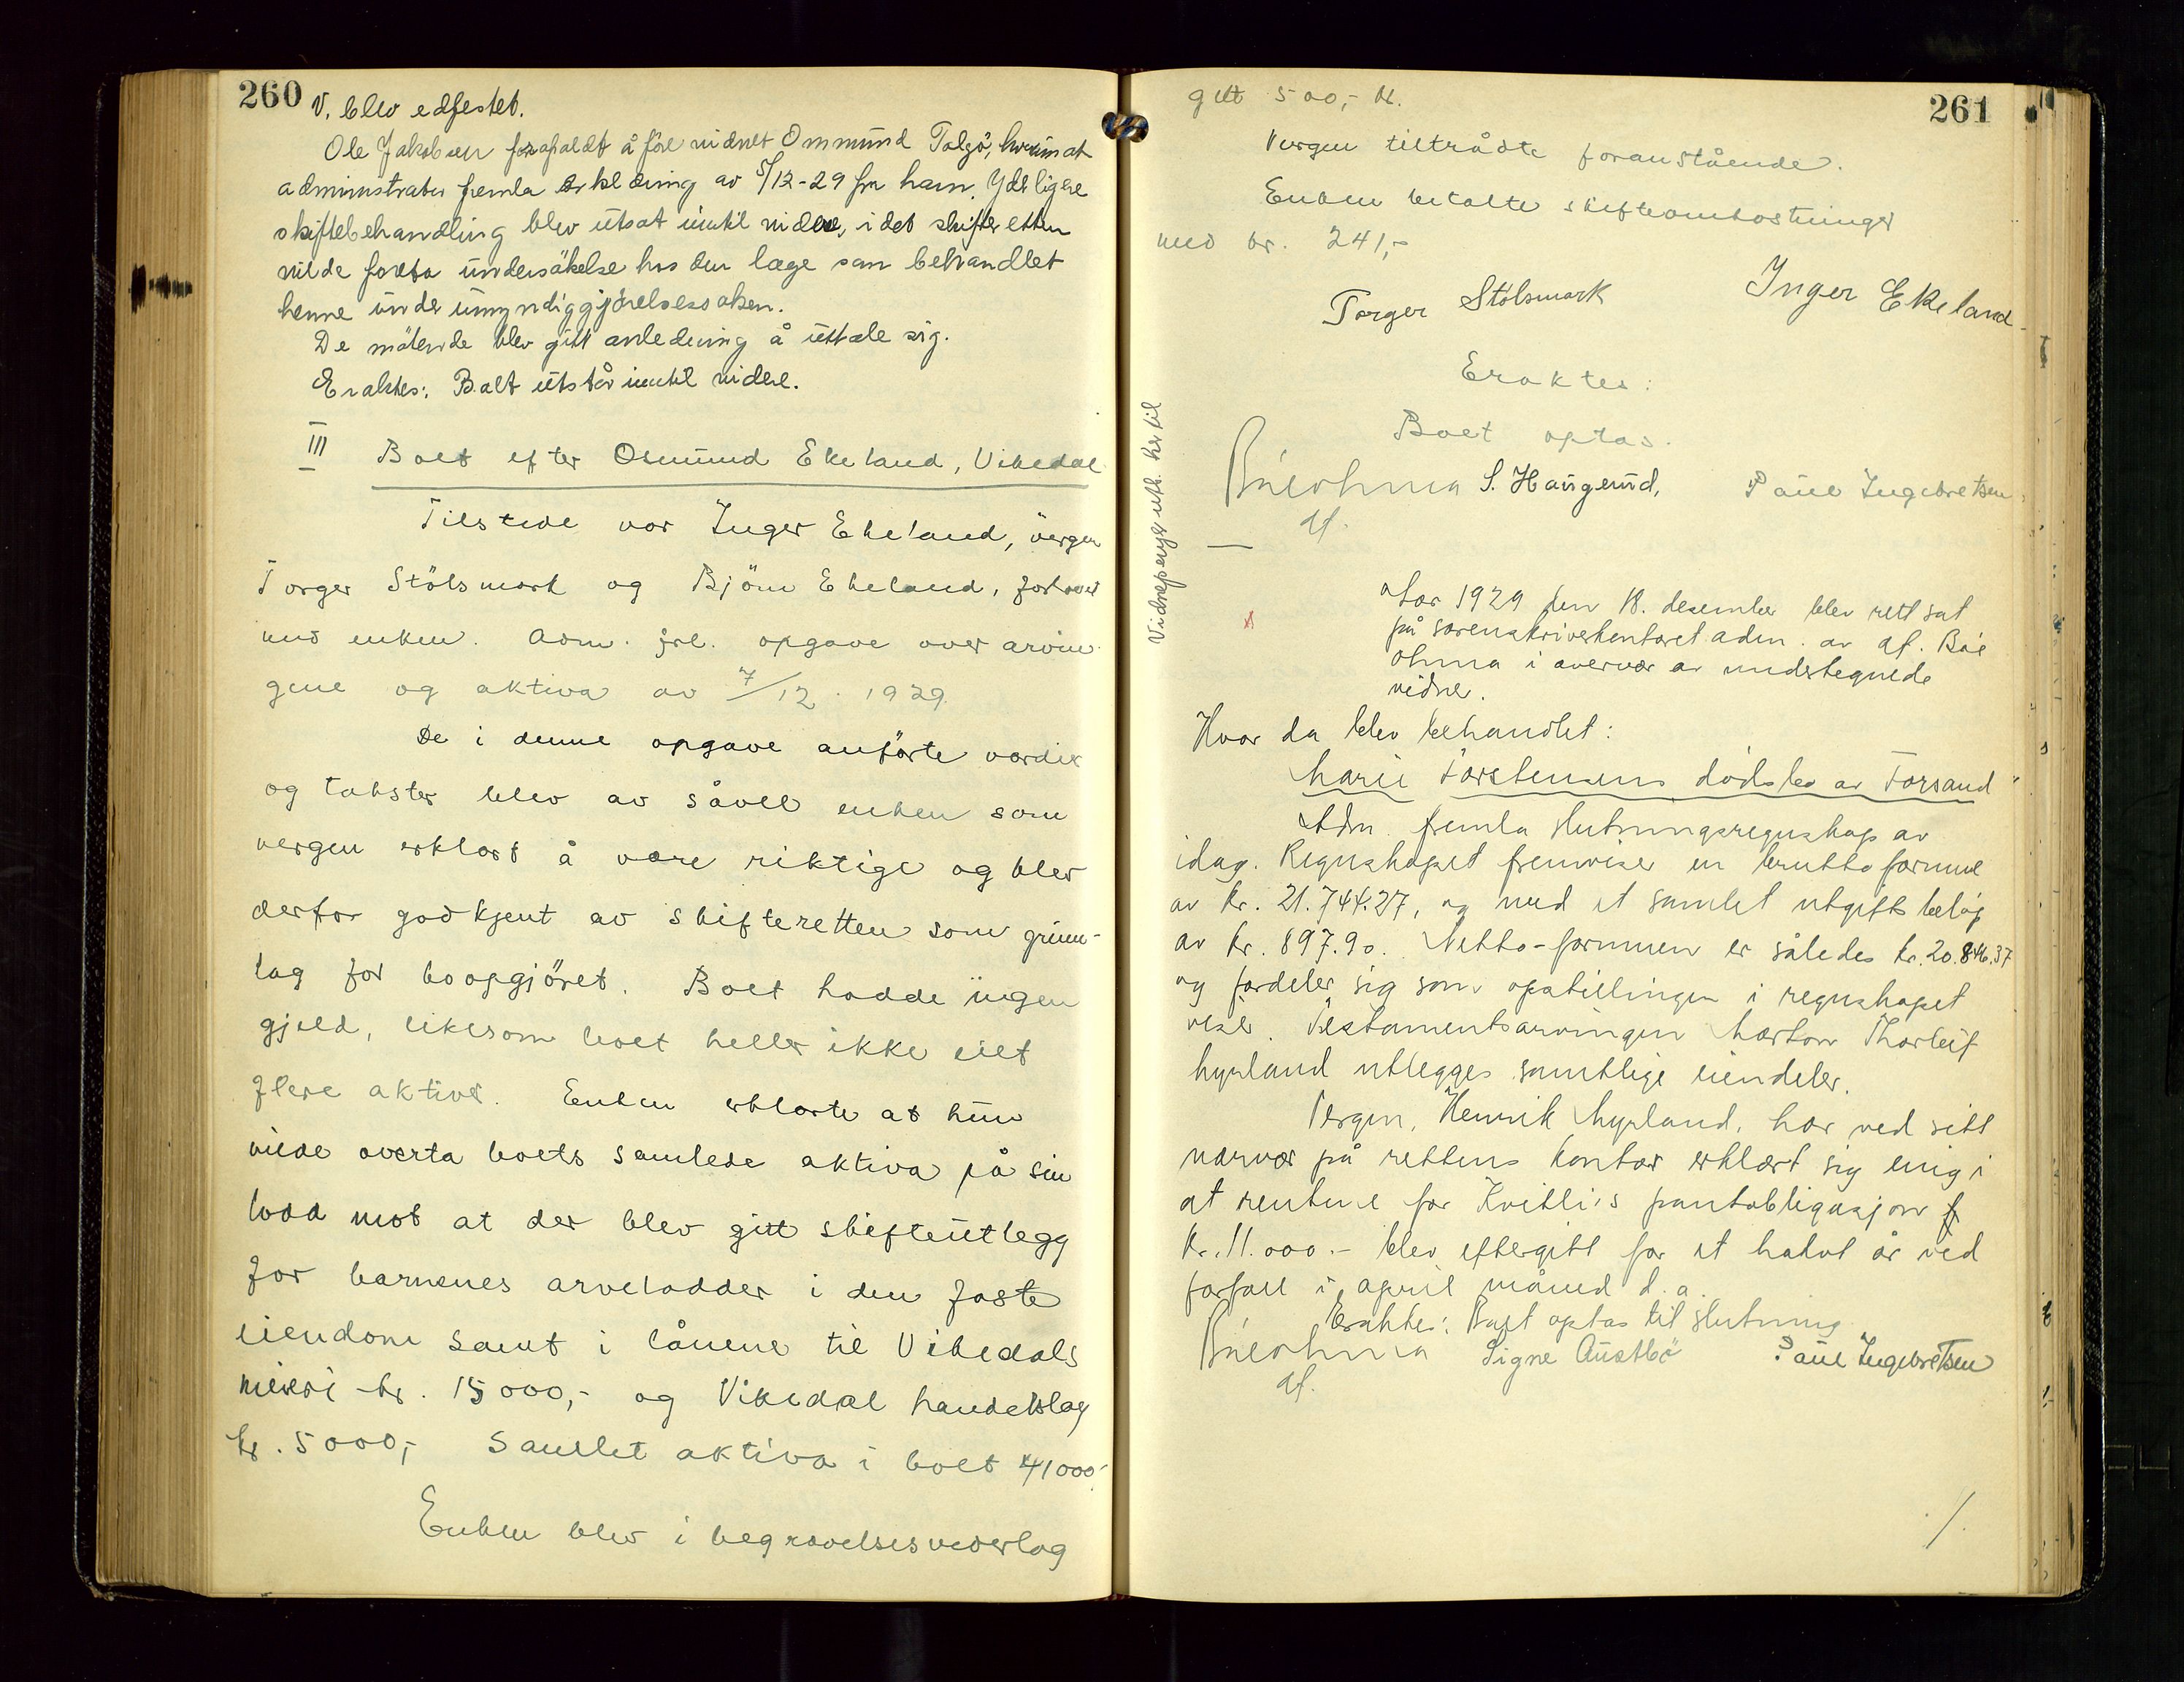 260
V. blev edfestet.
Ole Jakobsen frafaldt å føre vidnet Ommund Talgö, hvorimot
administrator fremla erklæring av 5/12-29 fra ham. Yderligere
skiftebehandling blev utsat inntil videre, idet skifteretten
vilde foreta undersökelse hos den læge som behandlet
henne under umyndiggjörelsessaken.
De mötende blev gitt anledning å uttale sig.
Eraktes: Boet utstår inntil videre.
III Boet efter Osmund Ekeland, Vikedal
Tilstede var Inger Ekeland, vergen
Torger Stölsmark og Björn Ekeland, forlovet
med enken. Adm. frl. opgave over arvin-
gene og aktiva av 7/12 1929
De i denne opgave anförte verdier
og takster blev av såvel enken som
vergen erklært å være riktige og blev
derfor godkjent av skifteretten som grunn-
lag for boopgjöret. Boet hadde ingen
gjeld, likesom boet heller ikke eiet
flere aktiver. Enken erklærte at hun
vilde overta boets samlede aktiva på sin
lodd mot at der blev gitt skifteutlegg
for barnenes arvelodder i den faste
eiendom samt i lånene til Vikedals
meieri kr. 15000,- og Vikedal handelslag
kr. 5000,- Samlet aktiva i boet 41000,-
Enken blev i begravelsesvederlag
261
gitt 500,- kr.
Vergen tiltrådte foranstående.
Enken betalte skifteomkostninger
med kr. 241,-
Torger Stölsmark Inger Ekeland
Eraktes:
Boet optas.
S. Haugerud, Paul Ingebretsen
af.
Vidnepenger utb. hertil
År 1929 den 18. desember blev rett sat
på sorenskriverkontoret adm. av af. Böe
Ohma i overvær av undertegnede
vidner.
Hvor da blev behandlet:
Marie Torstensens dödsbo av Forsand
Adm. fremla slutningsregnskap av
idag. Regnskapet fremviser en brutto formue
av kr. 21.744.27, og med et samlet utgiftsbelöp
av kr. 897.90. Netto-formuen er således kr. 20.846.37
og fordeler sig som opstillingen i regnskapet
viser. Testamentsarvingen Morton Thorleif
Myrland utlegges samtlige eiendeler.
Vergen, Henrik Myrland, har ved sitt
nærvær på rettens kontor erklært sig enig i
at rentene for Kvitli's pantobligasjon
kr. 11.000.- blev eftergitt for et halvt år ved
forfall i april måned d.a.
Eraktes: Boet optas til slutning
Signe Austbö Paul Ingebretsen
af.